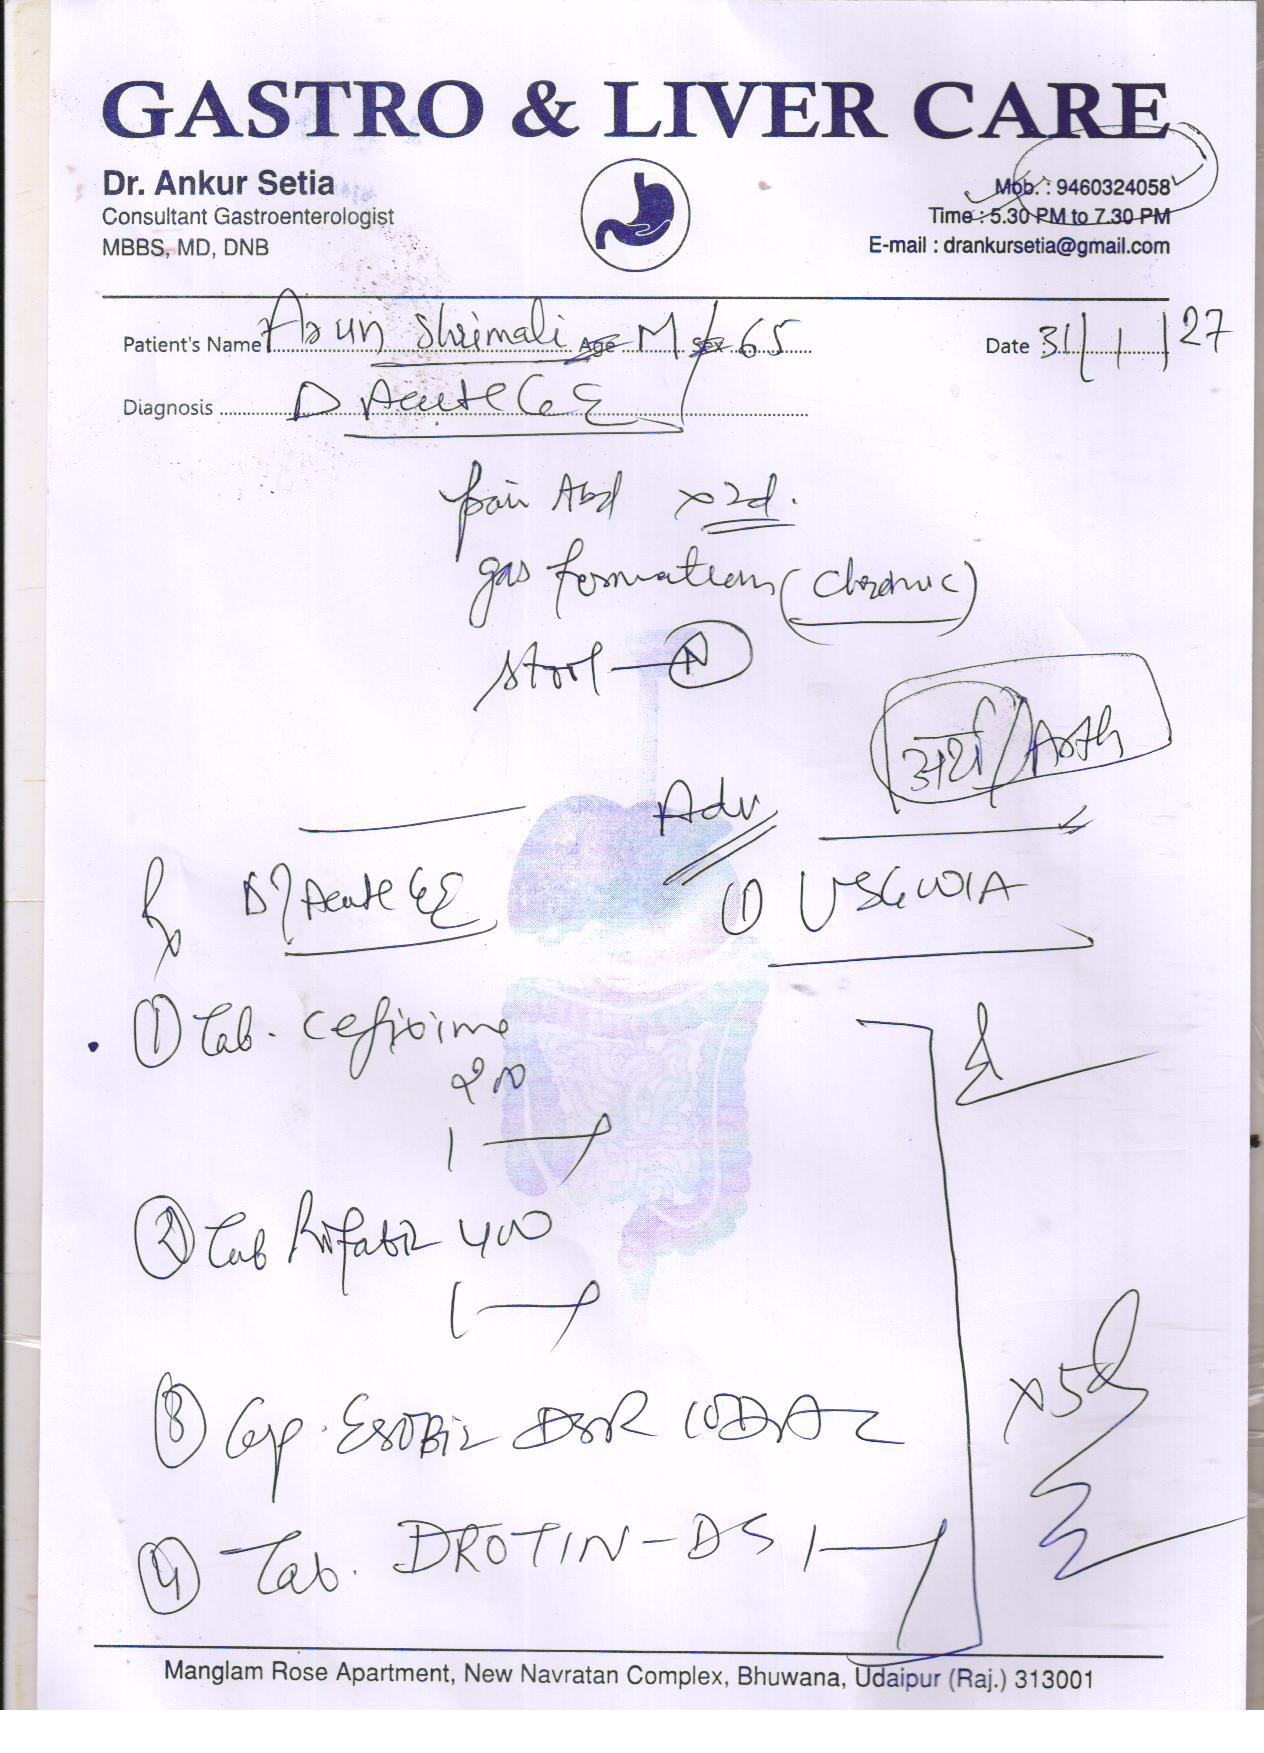 GASTRO & LIVER CARE
Dr. Ankur Setia
Consultant Gastroenterologist
MBBS, MD, DNB
Mob. : 9460324058
Time : 5.30 PM to 7.30 PM
E-mail : drankursetia@gmail.com
Patient's Name Arun Shrimali Age M Sex 65
Date 31/1/27
Diagnosis D Acute GE
pain Abd x2d.
gas formation (chronic)
stool — N
अर्थ / Arth
Adv
Rx D Acute GE
① USG W/A
① Tab. cefixime
200
1 —
② Tab 400
1 —
③ Cap. ESOBIZ DSR
④ Tab. DROTIN-DS 1 —
x5d
Manglam Rose Apartment, New Navratan Complex, Bhuwana, Udaipur (Raj.) 313001